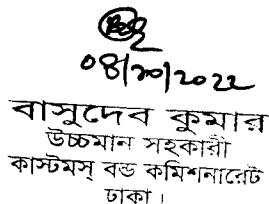 08/10/2022
বাসুদেব কুমার
উচ্চমান সহকারী
কাস্টমস্ বন্ড কমিশনারেট
ঢাকা।